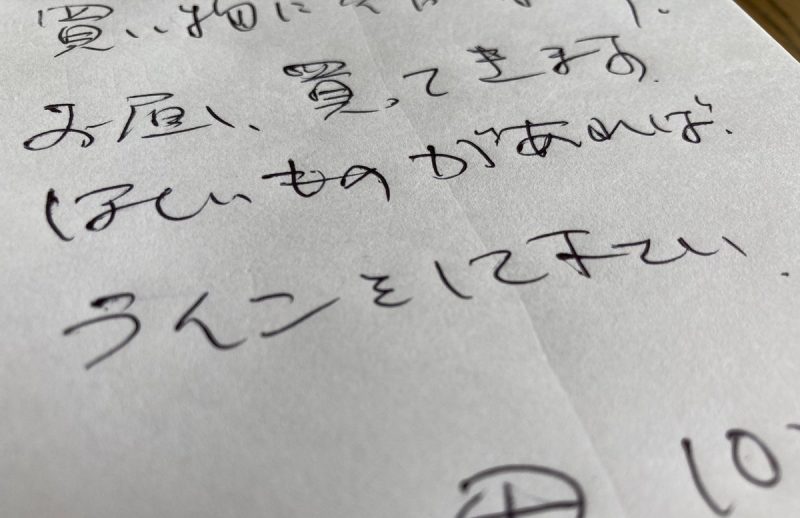 買い物に
お昼、買ってきます
ほしいものがあれば、
ラインをして下さい.
10